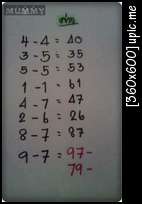 MUMMY
4 - 4 = 40
3 - 5 = 35
5 - 5 = 53
1 - 1 = 61
4 - 7 = 47
2 - 6 = 26
8 - 7 = 87
9 - 7 = 97-
79-
[360x600] uplc.me